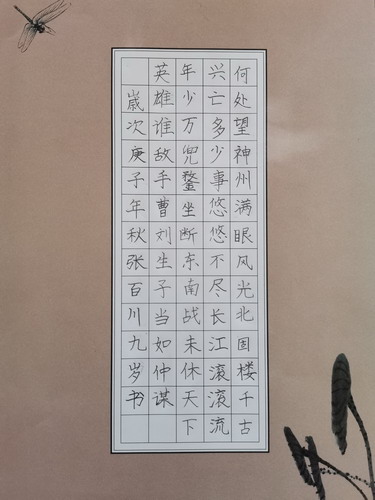 何处望神州满眼风光北固楼千古
兴亡多少事悠悠不尽长江滚滚流
年少万兜鍪坐断东南战未休天下
英雄谁敌手曹刘生子当如仲谋
岁次庚子年秋张百川九岁书